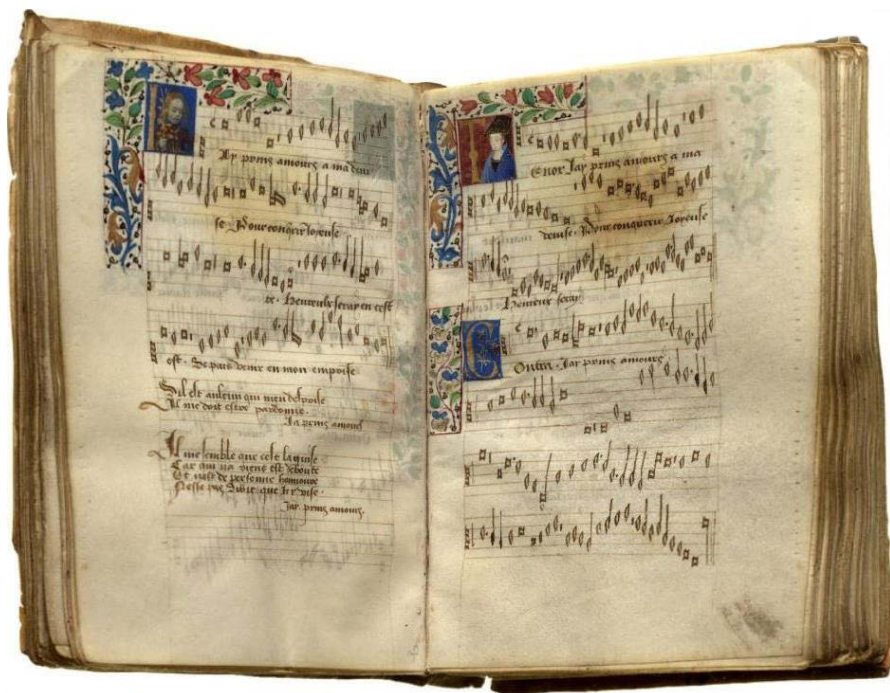 Ay prins amours a ma devi
se Pour conquerir Joyeuse
te . Heureux seray en cest
est . Se puis venir en mon emprise
Sil est aulcun qui
Il me doit estre pardonne .
Ja prins amours
Il me semble que cest la guise
Car qui na riens est deboute
Et nest de personne honnoure
Nesse pas que
Jay prins amours .
Enor Jay prins amours a ma
devise . Pour conquerir Joyeuse
Heureux seray
Contra . Jay prins amours